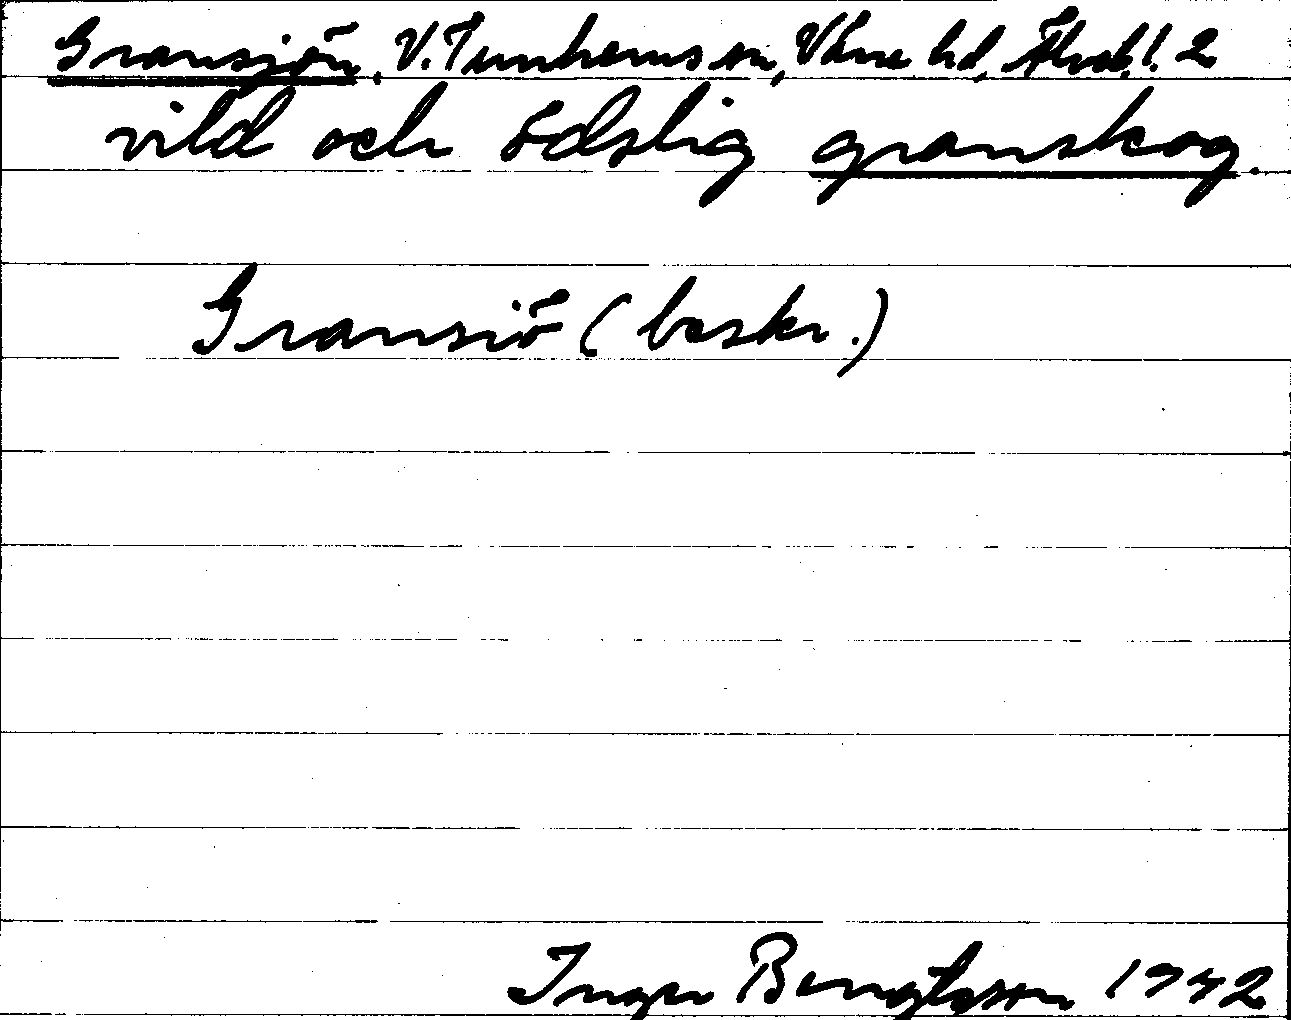 Gransjön, V. Tunhems sn, Väne hd, Älvsb. l. 2
vild och ödslig granskog.
Gransiö (beskr.)
Inger Bengtsson 1942